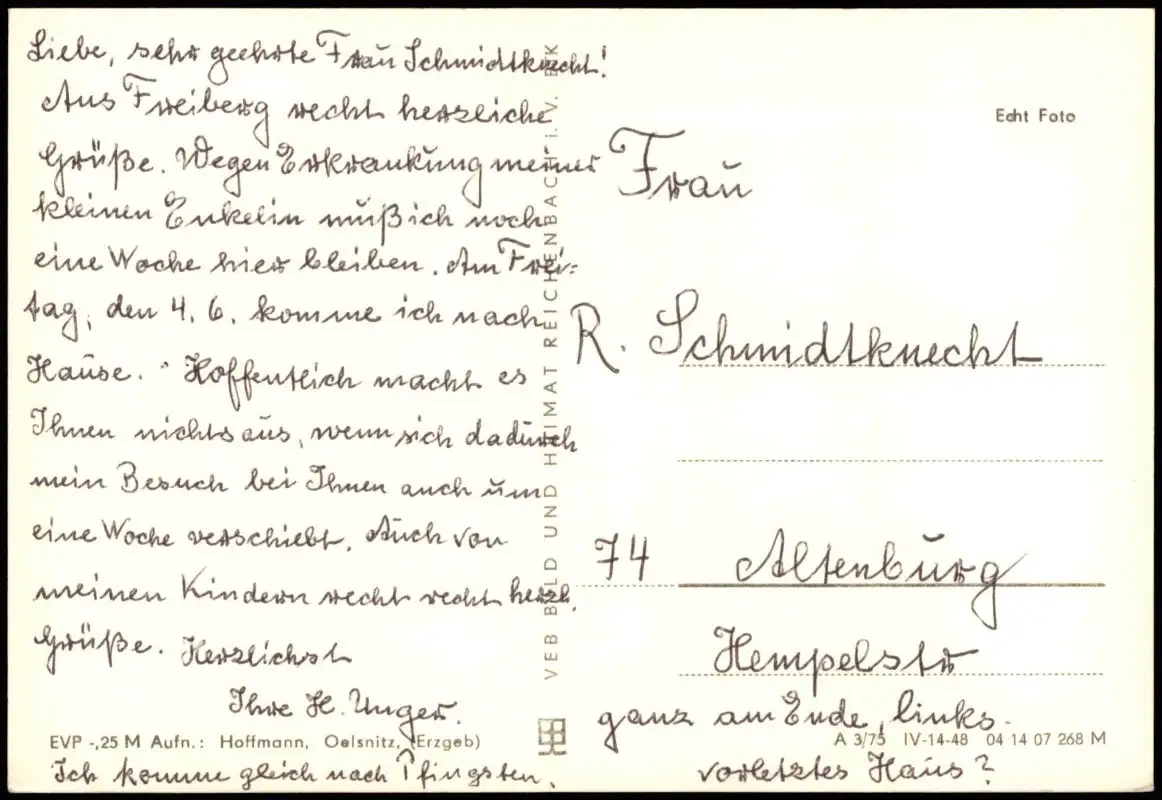 Liebe, sehr geehrte Frau Schmidtknecht!
Aus Freiberg recht herzliche
Grüße. Wegen Erkrankung meiner
kleinen Enkelin muß ich noch
eine Woche hier bleiben. Am Frei-
tag, den 4. 6. komme ich nach
Hause. Hoffentlich macht es
Ihnen nichts aus, wenn sich dadurch
mein Besuch bei Ihnen auch um
eine Woche verschiebt. Auch von
meinen Kindern recht recht herzl.
Grüße. Herzlichst
Ihre H. Unger.
Ich komme gleich nach Pfingsten.
EVP -,25 M Aufn.: Hoffmann, Oelsnitz, (Erzgeb)
VEB BILD UND HEIMAT REICHENBACH I. V. BK
Echt Foto
Frau
R. Schmidtknecht
74 Altenburg
Hempelstr
ganz am Ende, links.
vorletztes Haus?
A 3/75 IV-14-48 04 14 07 268 M